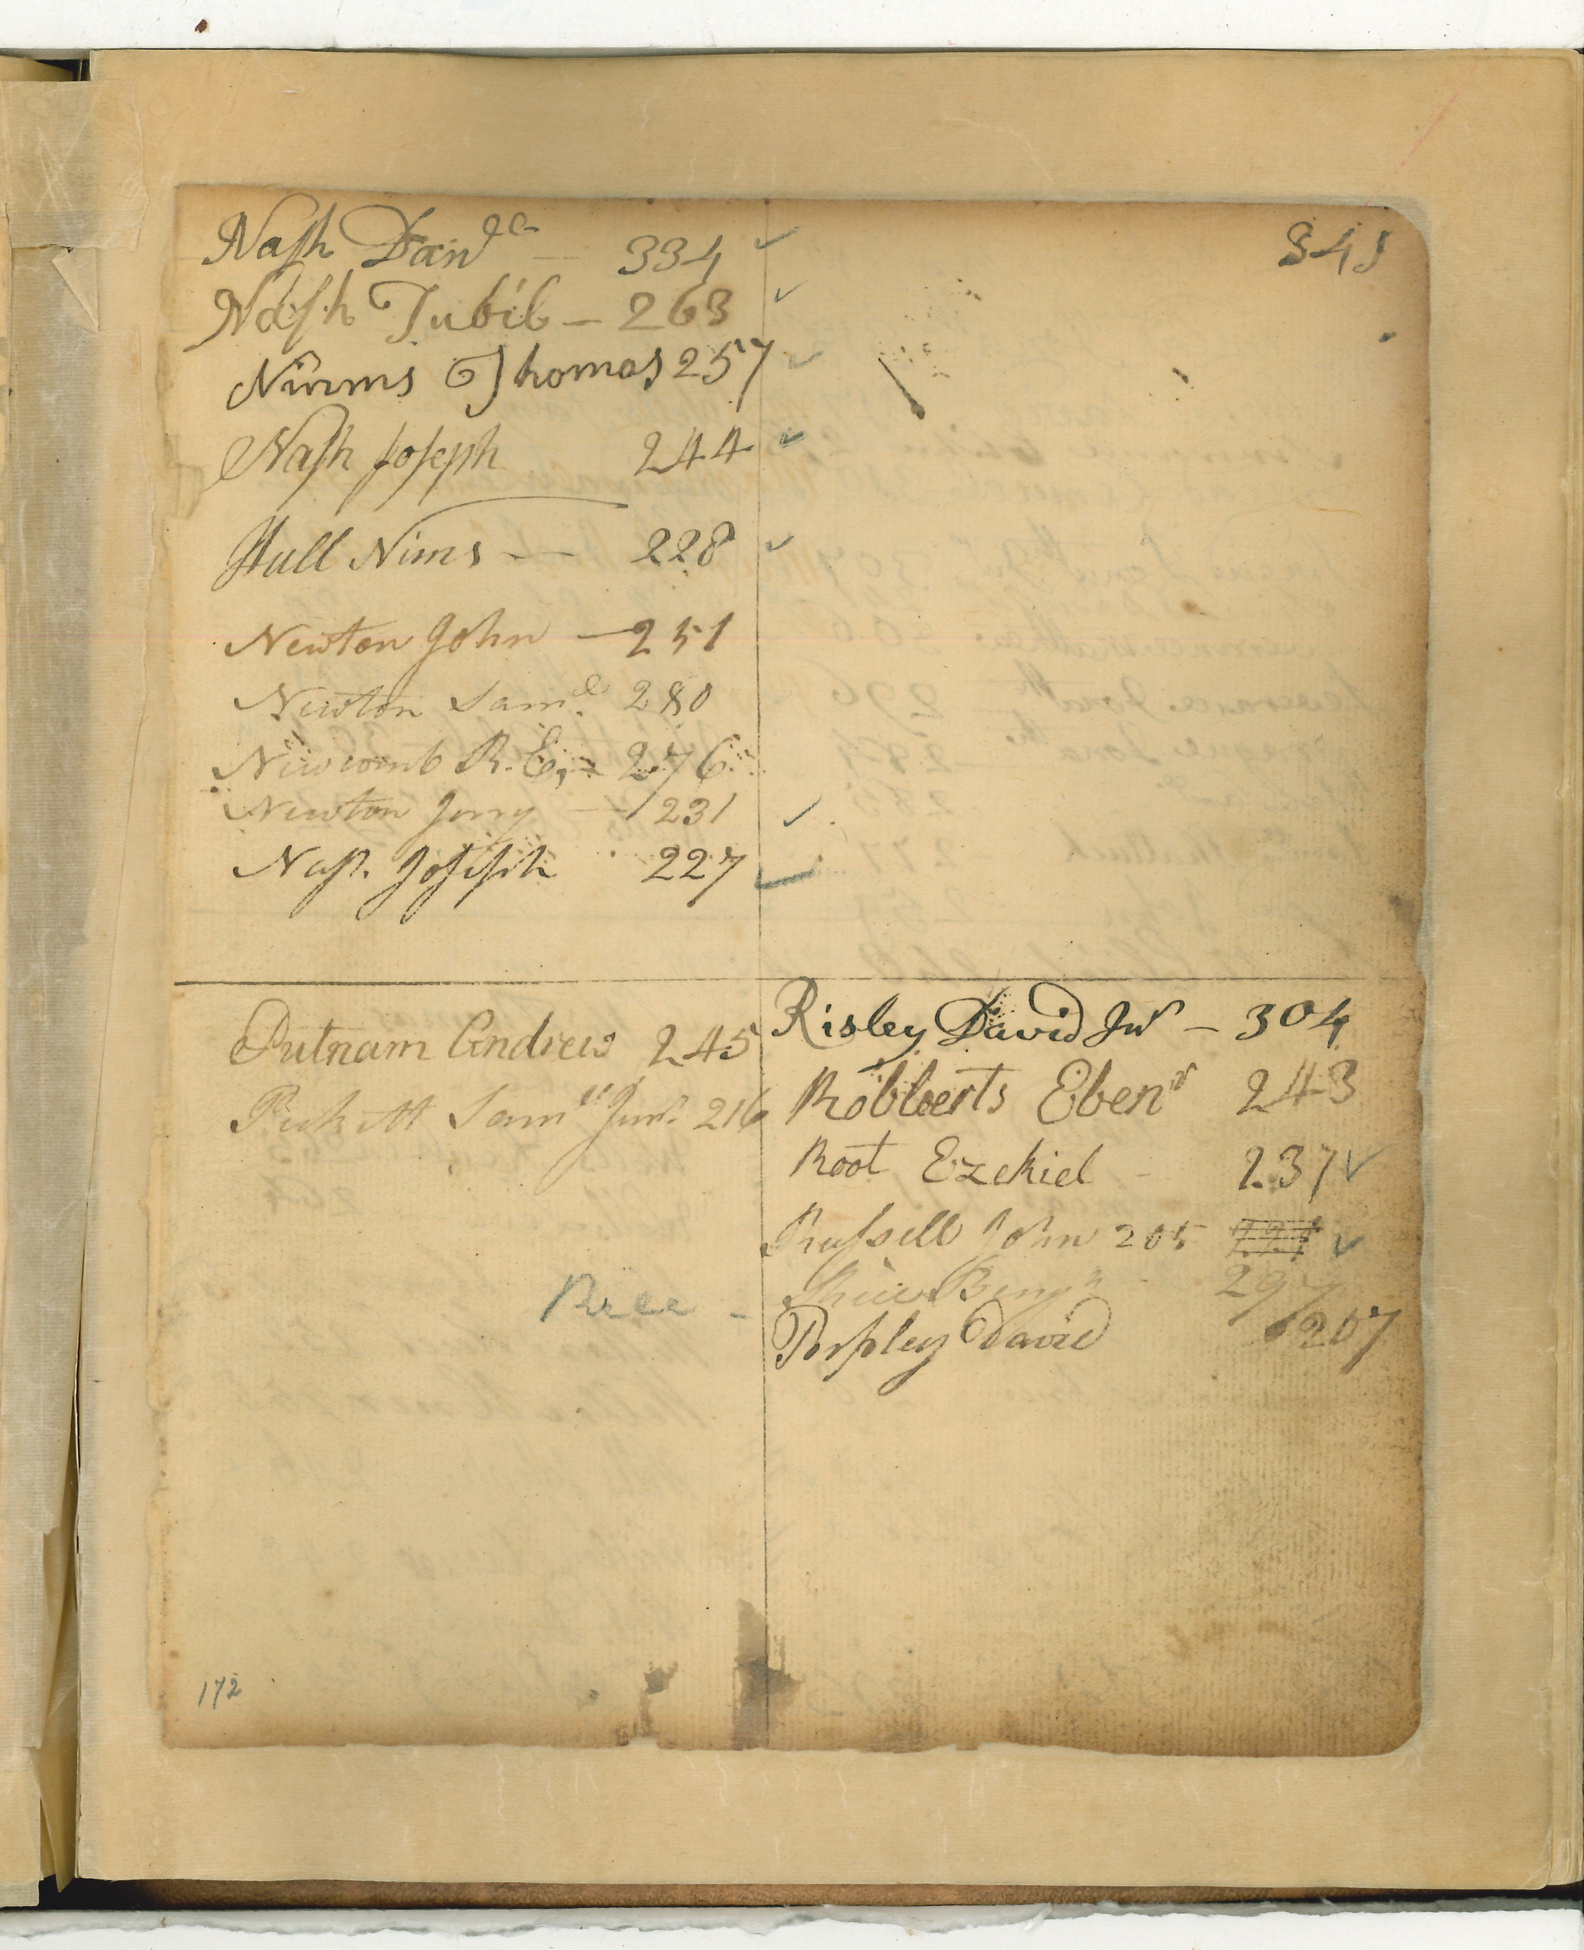 345
Nash Danˡˡ — 334 ✓
Nash Tubil — 263 ✓
Nimms Thomas 257 ✓
Nash Joseph 244 ✓
Hull Nims — 228 ✓
Newton John — 251
Newton Samˡ 280
Newcomb R. E, — 276
Newton Jerry — 231 ✓
Nash Joseph 227 ✓
Putnam Andrew 245
Pickett Samˡˡ Junʳ 216
Risley David Juʳ — 304
Robberts Ebenʳ 243
Root Ezekiel - 237 ✓
Russell John 205 ✓
Rice - Rice Benjⁿ - 297
David 207
172